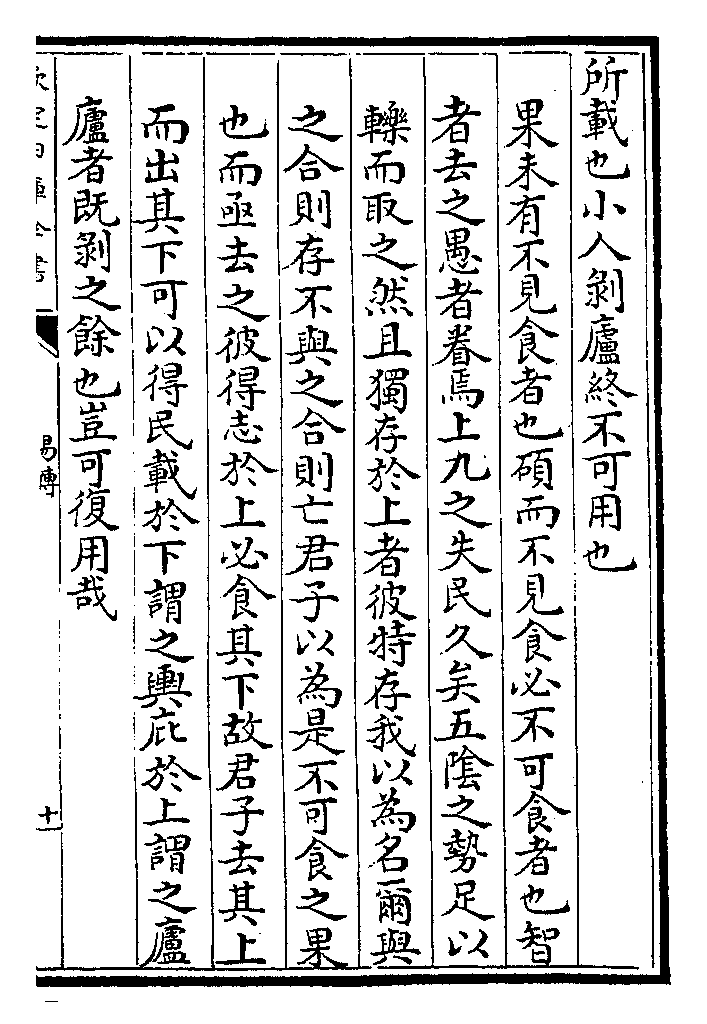 所載也小人剝廬終不可用也
果未有不見食者也碩而不見食必不可食者也智
者去之愚者眷焉上九之失民久矣五陰之勢足以
轢而取之然且獨存於上者彼特存我以為名爾與
之合則存不與之合則亡君子以為是不可食之果
也而亟去之彼得志於上必食其下故君子去其上
而出其下可以得民載於下謂之輿庇於上謂之廬
廬者既剝之餘也豈可復用哉
易傳
十一